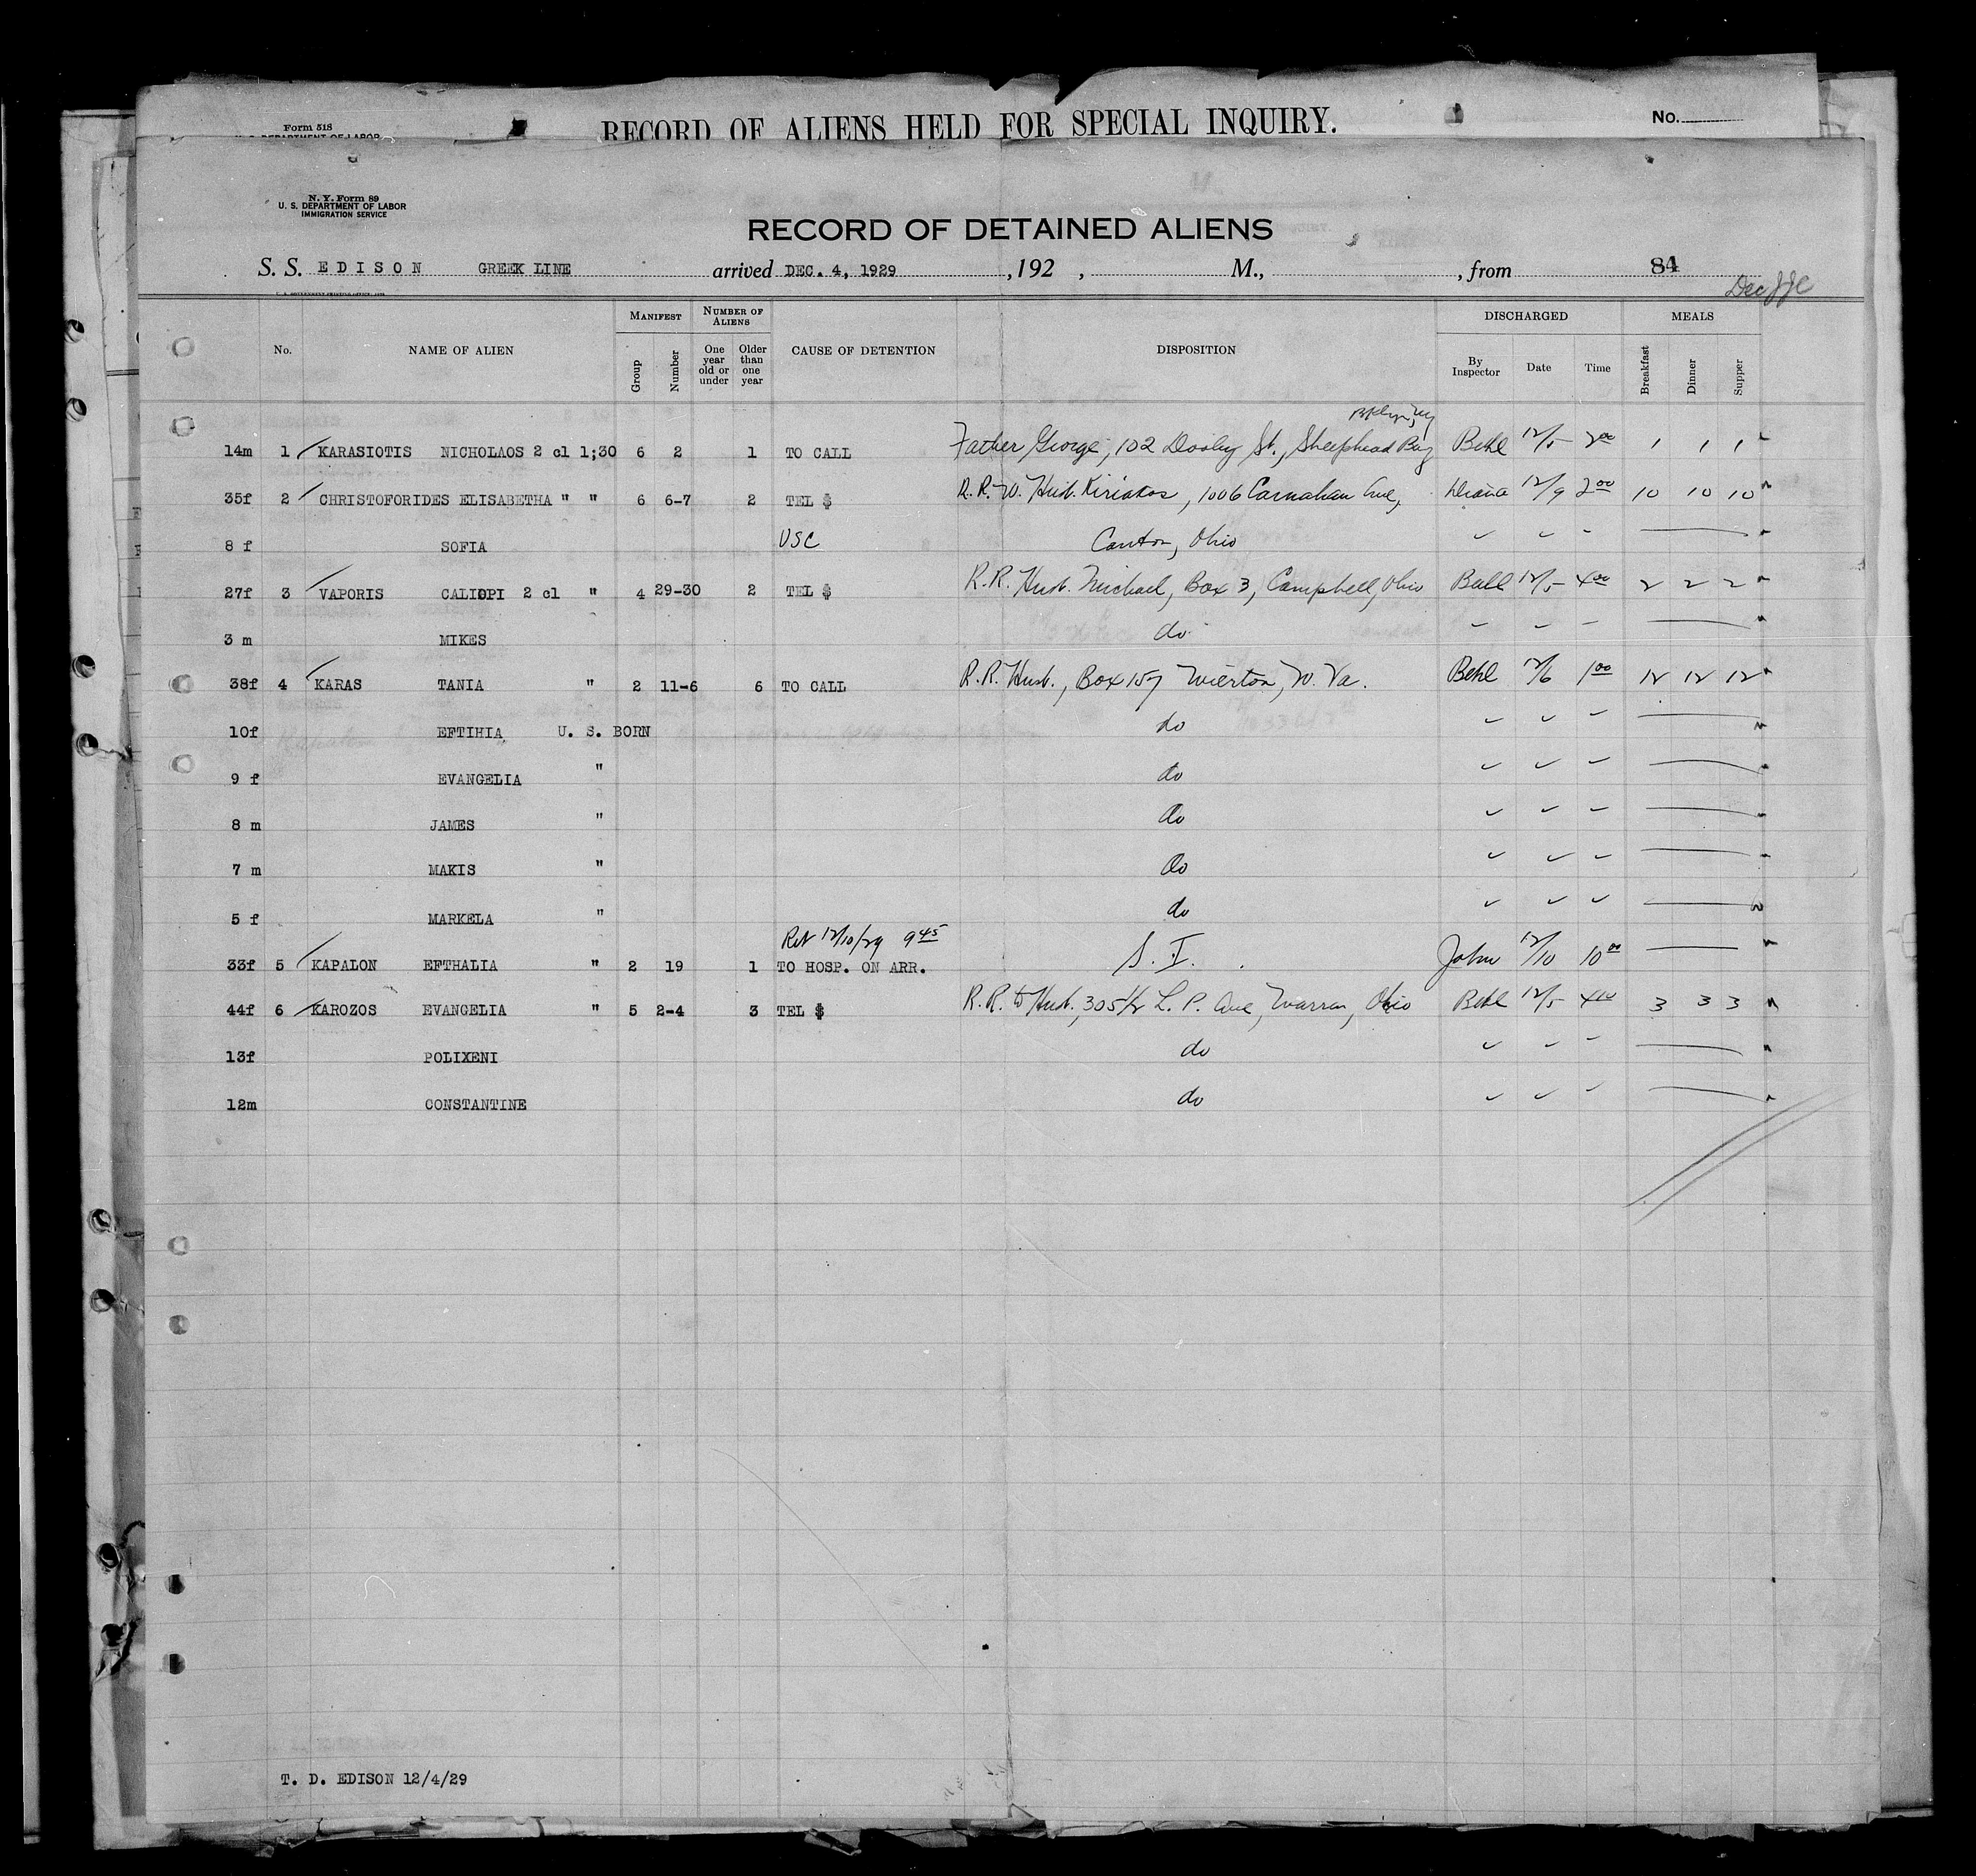 Form 518
RECORD OF ALIENS HELD FOR SPECIAL INQUIRY.
No.
N. Y. Form 89
U. S. DEPARTMENT OF LABOR
IMMIGRATION SERVICE
RECORD OF DETAINED ALIENS
S. S. EDISON GREEK LINE arrived DEC. 4, 1929, 192 , M., , from 84
No. NAME OF ALIEN MANIFEST Group Number NUMBER OF ALIENS One year old or under Older than one year CAUSE OF DETENTION DISPOSITION DISCHARGED By Inspector Date Time MEALS Breakfast Dinner Supper
Bklyn, NY
14m 1 KARASIOTIS NICHOLAOS 2 cl 1;30 6 2 1 TO CALL Father George, 102 Dooley St., Sheepshead Bay Behl 12/5 2 00 1 1 1
35f 2 CHRISTOFORIDES ELISABETHA " " 6 6-7 2 TEL $ R.R. W. Husb. Kiriakos, 1006 Carnahan Ave, 12/9 2 00 10 10 10
8 f SOFIA USC Canton, Ohio
27f 3 VAPORIS CALIOPI 2 cl " 4 29-30 2 TEL $ R.R. Husb. Michael, Box 3, Campbell, Ohio 12/5 4 00 2 2 2
3 m MIKES do
38f 4 KARAS TANIA " 2 11-6 6 TO CALL R.R. Husb., Box 157 Wierton, W. Va. Behl 12/6 1 00 12 12 12
10f EFTIHIA U. S. BORN do
9 f EVANGELIA " do
8 m JAMES " do
7 m MAKIS " do
5 f MARKELA " do
Ret 12/10/29 9 45
33f 5 KAPALON EFTHALIA " 2 19 1 TO HOSP. ON ARR. S. I. John 12/10 10 00
44f 6 KAROZOS EVANGELIA " 5 2-4 3 TEL $ R.R. to Husb., 305 1/2 L. P. Ave, Warren, Ohio Behl 12/5 4 00 3 3 3
13f POLIXENI do
12m CONSTANTINE do
T. D. EDISON 12/4/29